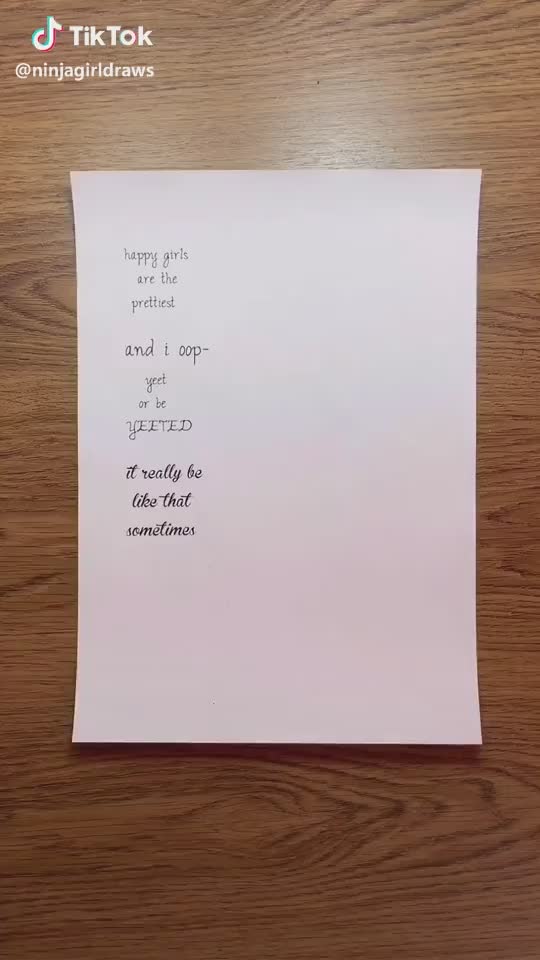 TikTok
@ninjagirldraws
happy girls
are the
prettiest
and i oop-
yeet
or be
YEETED
it really be
like that
sometimes